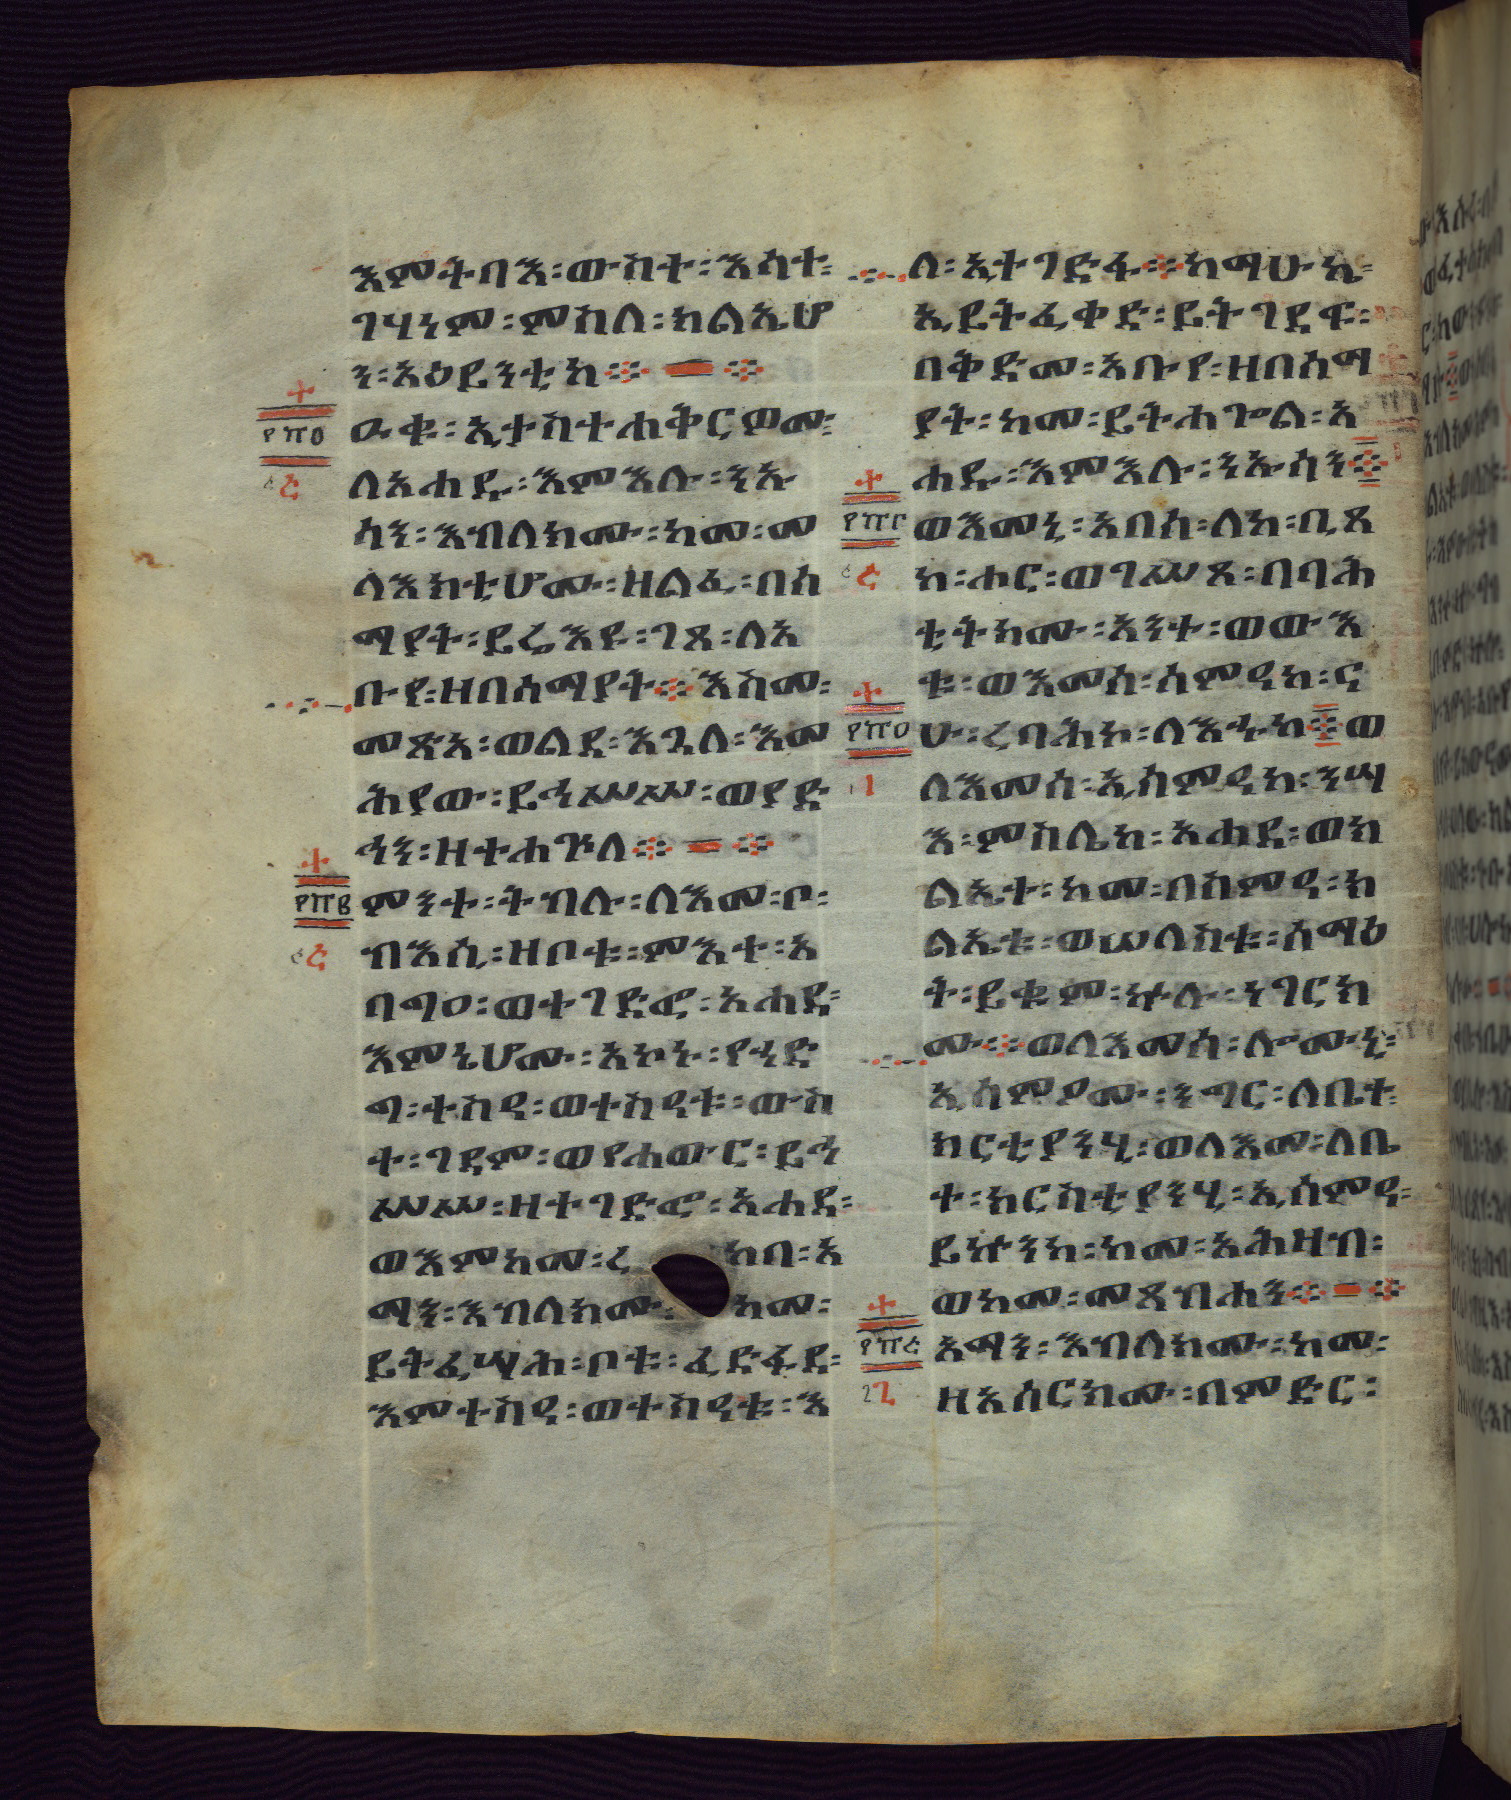 እምትባእ፡ውስተ፡እሳተ፡
ገሃነም፡ምስለ፡ክልኤሆ
ን፡አዕይንቲከ፨
ዑቁ፡ኢታስተሐቅርዎሙ፡
ለአሐዱ፡እምእሉ፡ንኡ
ሳን፡እብለክሙ፡ከመ፡መ
ላእክቲሆሙ፡ዘልፈ፡በሰ
ማያት፡ይሬእዩ፡ገጸ፡ለአ
ቡየ፡ዘበሰማያት፨እስመ፡
መጽአ፡ወልደ፡እጓለ፡እመ
ሕያው፡ይኅሥሥ፡ወያድ
ኅን፡ዘተሐጕለ፨
ምንተ፡ትብሉ፡ለእመ፡ቦ፡
ብእሲ፡ዘቦቱ፡ምእተ፡አ
ባግዐ፡ወተገድፎ፡አሐዱ፡
እምኔሆሙ፡አኮኑ፡የኀድ
ግ፡ተስዓ፡ወተስዓቱ፡ውስ
ተ፡ገዳም፡ወየሐውር፡ይኅ
ሥሥ፡ዘተገድፎ፡አሐደ፡
ወእምከመ፡ረከባ፡አ
ማን፡እብለክሙ፡ከመ፡
ይትፌሣሕ፡ቦቱ፡ፈድፋደ፡
እምተስዓ፡ወተስዓቱ፡እ
ለ፡ኢተገድፋ፨ከማሁኬ፡
ኢይትፈቀድ፡ይትገደፍ፡
በቅድመ፡አቡየ፡ዘበሰማ
ያት፡ከመ፡ይትሐጐል፡አ
ሐዱ፡እምእሉ፡ንኡሳን፨
ወእመኒ፡አበሰ፡ለከ፡ቢጸ
ከ፡ሑር፡ወገሥጾ፡በባሕ
ቲትክሙ፡አንተ፡ወውእ
ቱ፡ወእመሰ፡ሰምዓከ፡ና
ሁ፡ረባሕኮ፡ለእኁከ፨ወ
ለእመሰ፡ኢሰምዓከ፡ንሣ
እ፡ምስሌከ፡አሐደ፡ወክ
ልኤተ፡ከመ፡በስምዓ፡ክ
ልኤቱ፡ወሠለስቱ፡ሰማዕ
ት፡ይቁም፡ኵሉ፡ነገርክ
ሙ፨ወለእመሰ፡ሎሙኒ፡
ኢሰምዖሙ፡ንግር፡ለቤተ፡
ክርቲያንሂ፡ወለእመ፡ለቤ
ተ፡ክርስቲያንሂ፡ኢሰምዓ፡
ይኩንከ፡ከመ፡አሕዛብ፡
ወከመ፡መጸብሓን፨
አማን፡እብለክሙ፡ከመ፡
ዘአሰርክሙ፡በምድር፡